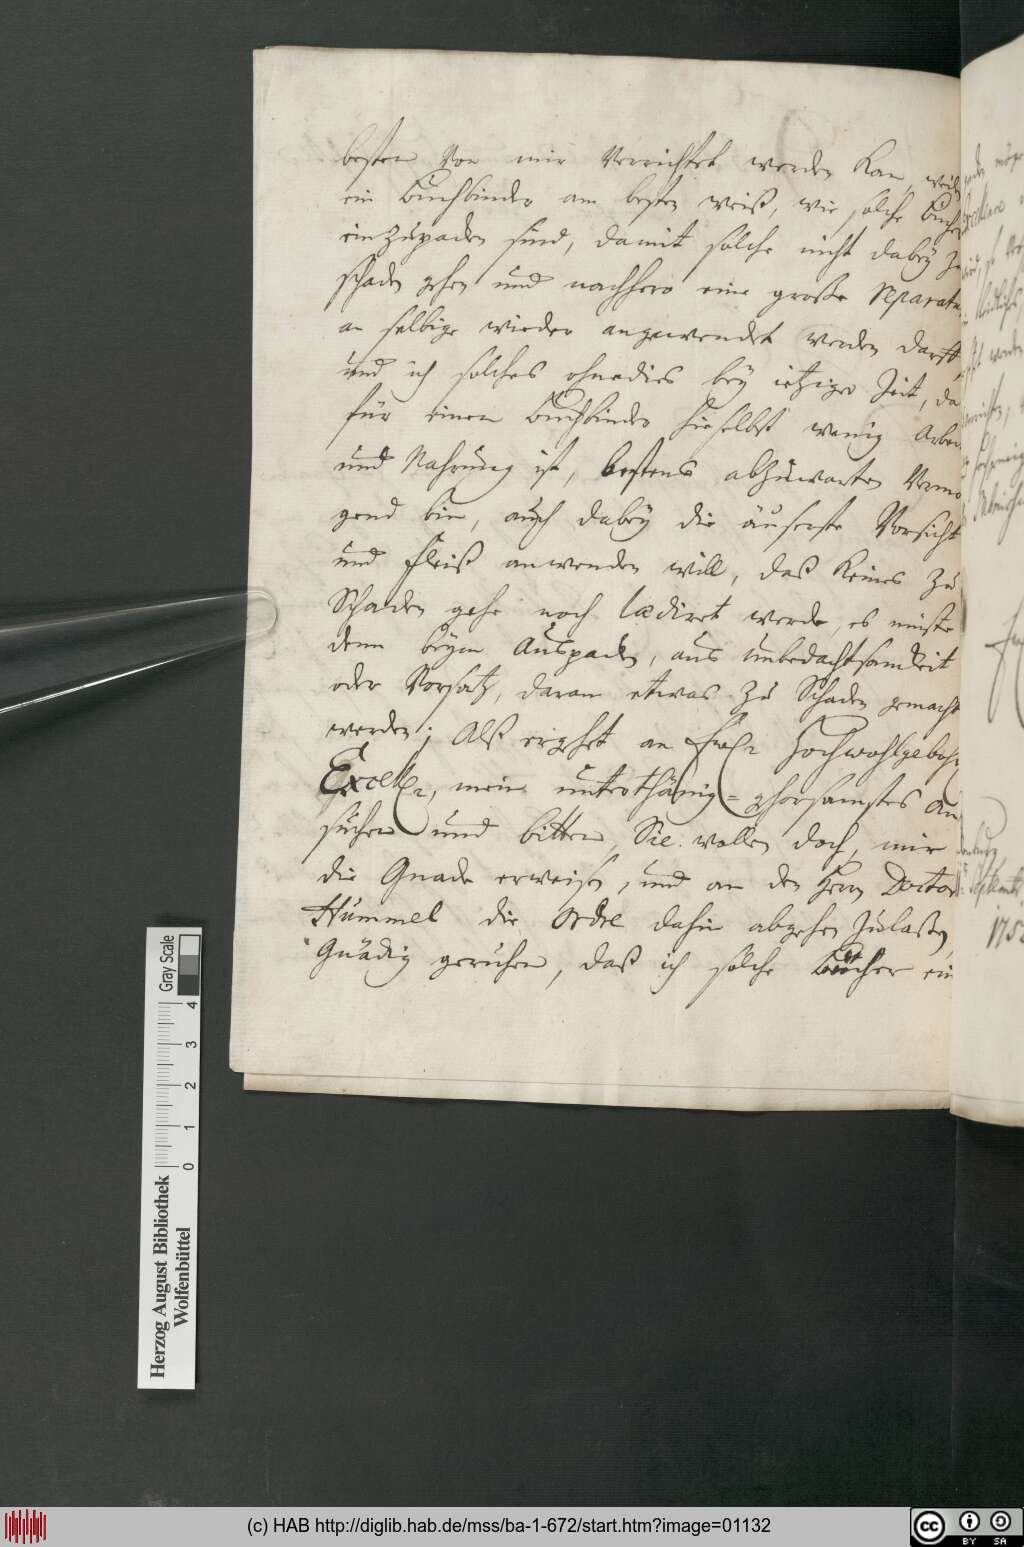 besten von mir verrichtet werden kan, weil
ein Buchbinder am besten weiß, wie solche Bücher
einzupacken sind, damit solche nicht dabey zu
schaden gehen und nachhero eine große Reparatur
an selbige wieder angewendet werden darff
und ich solches ohnedies bey ietziger Zeit, da
für einen Buchbinder hieselbst wenig Arbeit
und Nahrung ist, bestens abzuwarten vermö
gend bin, auch dabey die äuserste Vorsicht
und Fleiß anwenden will, daß keines zu
Schaden gehe noch lædiret werde, es müste
denn beym Auspacken, aus unbedachtsamkeit
oder Vorsatz, daran etwas zu Schaden gemacht
werden; Alß ergehet an Ew. Hochwohlgebohr
Excell, mein unterthänig= gehorsamstes An
suchen und bitten, Sie wollen doch, mir
die Gnade erweisen, und an den Herrn Doctor
Hümmel die Ordre dahin abgehen zulaßen,
Gnädig geruhen, daß ich solche Bücher ein
Septembr
175
Gray Scale
0 1 2 3 4
Herzog August Bibliothek
Wolfenbüttel
(c) HAB http://diglib.hab.de/mss/ba-1-672/start.htm?image=01132
cc BY SA